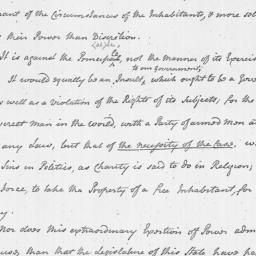 ment of the Circumstances of the Inhabitants, & more sol
their Power than Discretion.
It is against the Principle, not the Manner of its Exercis
to our Governments
It would equally be an Insult, which ought to be a Gov
s well as a Violation of the Rights of its Subjects; for the
verest man in the world, with a Party of armed men a
any Law, but that of the necessity of the case. w
Sins in Politics, as Charity is said to do in Religion;
force, to take the Property of a free Inhabitant, for
y.
Nor does this extraordinary Exertion of Power adm
use, than that the Legislature of this State have ha